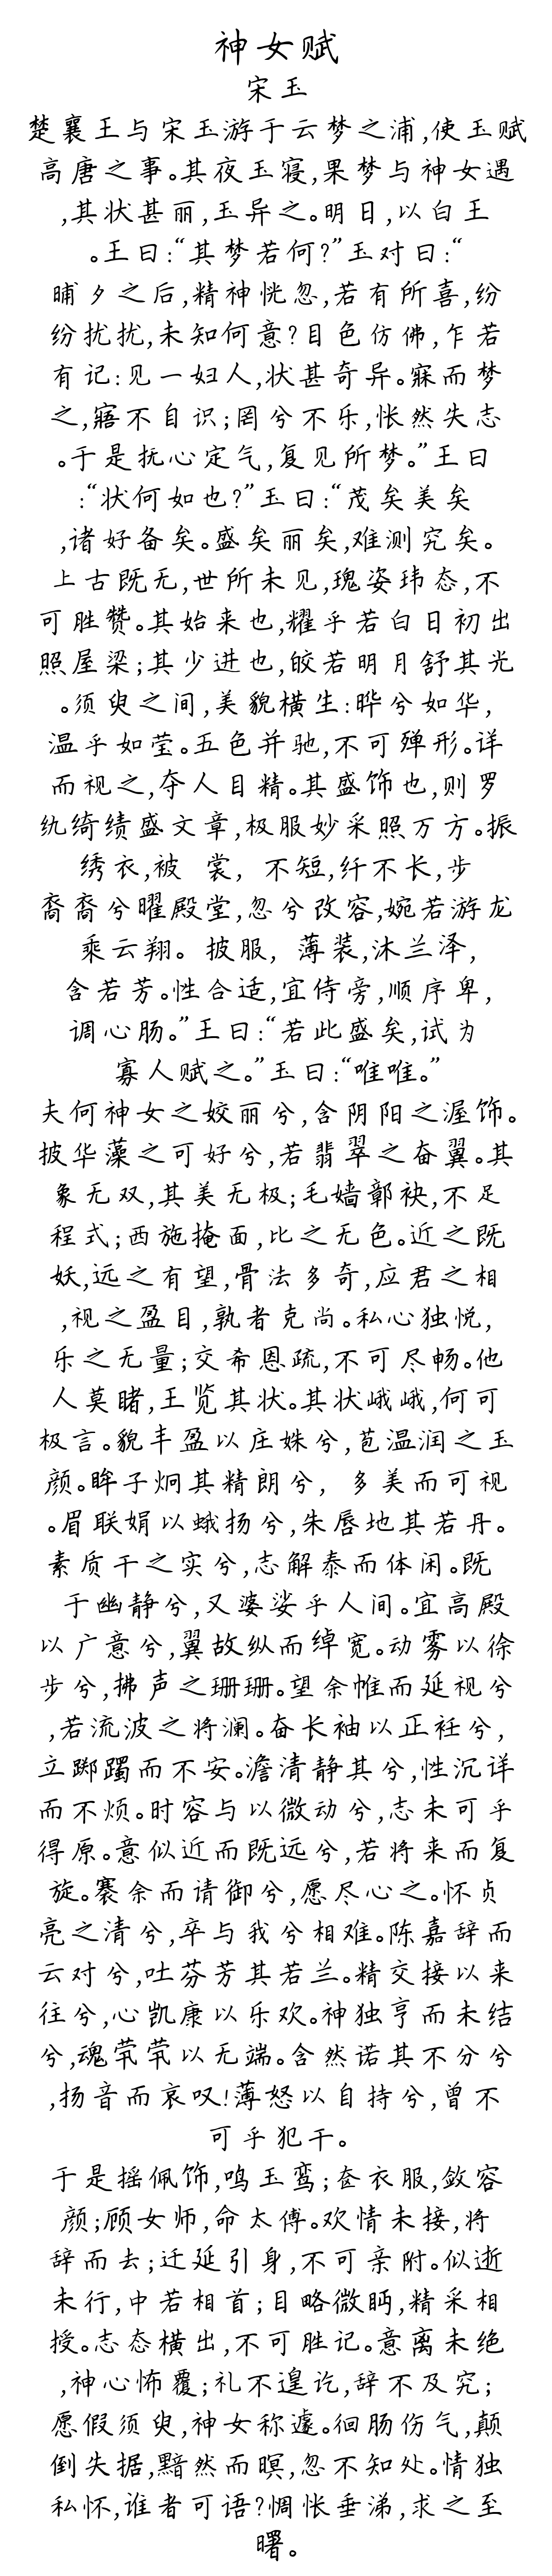 神女赋
宋玉
楚襄王与宋玉游于云梦之浦,使玉赋
高唐之事。其夜玉寝,果梦与神女遇
,其状甚丽,玉异之。明日,以白王
。王曰:“其梦若何?”玉对曰:“
晡夕之后,精神恍忽,若有所喜,纷
纷扰扰,未知何意?目色仿佛,乍若
有记:见一妇人,状甚奇异。寐而梦
之,寤不自识;罔兮不乐,怅然失志
。于是抚心定气,复见所梦。”王曰
:“状何如也?”玉曰:“茂矣美矣
,诸好备矣。盛矣丽矣,难测究矣。
上古既无,世所未见,瑰姿玮态,不
可胜赞。其始来也,耀乎若白日初出
照屋梁;其少进也,皎若明月舒其光
。须臾之间,美貌横生:晔兮如华,
温乎如莹。五色并驰,不可殚形。详
而视之,夺人目精。其盛饰也,则罗
纨绮缋盛文章,极服妙采照万方。振
绣衣,被 裳, 不短,纤不长,步
裔裔兮曜殿堂,忽兮改容,婉若游龙
乘云翔。 披服, 薄装,沐兰泽,
含若芳。性合适,宜侍旁,顺序卑,
调心肠。”王曰:“若此盛矣,试为
寡人赋之。”玉曰:“唯唯。”
夫何神女之姣丽兮,含阴阳之渥饰。
披华藻之可好兮,若翡翠之奋翼。其
象无双,其美无极;毛嫱鄣袂,不足
程式;西施掩面,比之无色。近之既
妖,远之有望,骨法多奇,应君之相
,视之盈目,孰者克尚。私心独悦,
乐之无量;交希恩疏,不可尽畅。他
人莫睹,王览其状。其状峨峨,何可
极言。貌丰盈以庄姝兮,苞温润之玉
颜。眸子炯其精朗兮, 多美而可视
。眉联娟以蛾扬兮,朱唇地其若丹。
素质干之实兮,志解泰而体闲。既
于幽静兮,又婆娑乎人间。宜高殿
以广意兮,翼故纵而绰宽。动雾以徐
步兮,拂声之珊珊。望余帷而延视兮
,若流波之将澜。奋长袖以正衽兮,
立踯躅而不安。澹清静其兮,性沉详
而不烦。时容与以微动兮,志未可乎
得原。意似近而既远兮,若将来而复
旋。褰余而请御兮,愿尽心之。怀贞
亮之清兮,卒与我兮相难。陈嘉辞而
云对兮,吐芬芳其若兰。精交接以来
往兮,心凯康以乐欢。神独亨而未结
兮,魂茕茕以无端。含然诺其不分兮
,扬音而哀叹!薄怒以自持兮,曾不
可乎犯干。
于是摇佩饰,鸣玉鸾;奁衣服,敛容
颜;顾女师,命太傅。欢情未接,将
辞而去;迁延引身,不可亲附。似逝
未行,中若相首;目略微眄,精采相
授。志态横出,不可胜记。意离未绝
,神心怖覆;礼不遑讫,辞不及究;
愿假须臾,神女称遽。徊肠伤气,颠
倒失据,黯然而暝,忽不知处。情独
私怀,谁者可语?惆怅垂涕,求之至
曙。